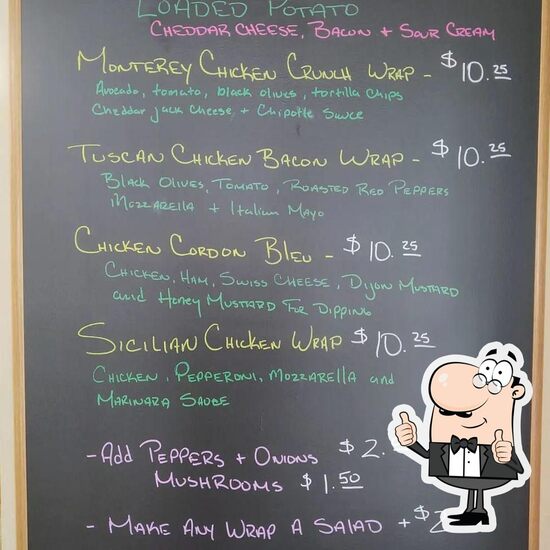 LOADED POTATO
CHEDDAR CHEESE, BACON + SOUR CREAM
MONTEREY CHICKEN CRUNCH WRAP - $10.25
Avocado, tomato, black olives, tortilla chips
Cheddar jack cheese + Chipotle Sauce
TUSCAN CHICKEN BACON WRAP - $10.25
BLACK OLIVES, TOMATO, ROASTED RED PEPPERS
MOZZARELLA + Italian MAYO
CHICKEN CORDON BLEU - $10.25
CHICKEN, HAM, SWISS CHEESE, DIJON MUSTARD
and HONEY MUSTARD FOR DIPPING
SICILIAN CHICKEN WRAP $10.25
CHICKEN, PEPPERONI, MOZZARELLA and
MARINARA SAUCE
- Add PEPPERS + ONIONS $2.
MUSHROOMS $1.50
- MAKE ANY WRAP A SALAD + $